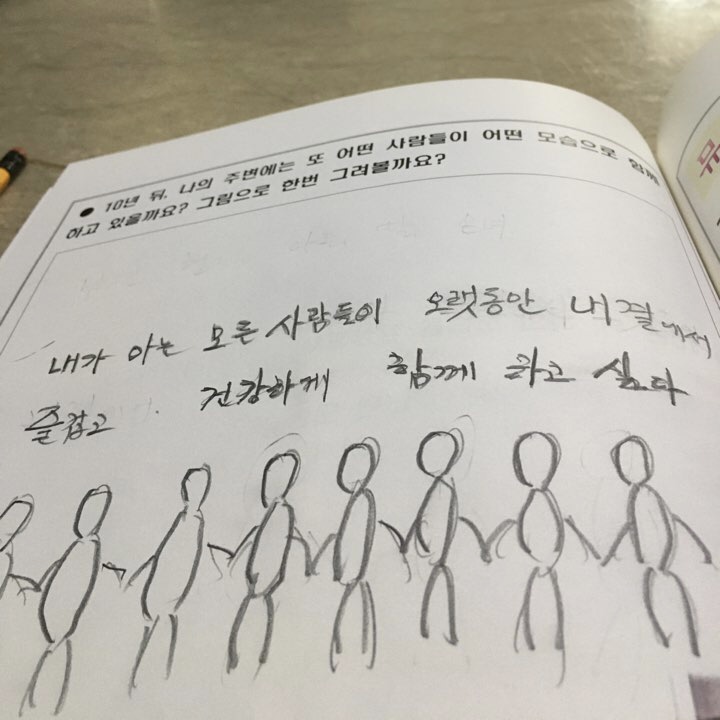 ● 10년 뒤, 나의 주변에는 또 어떤 사람들이 어떤 모습으로 함께
하고 있을까요? 그림으로 한번 그려볼까요?
내가 아는 모든 사람들이 오랫동안 내 곁에서
즐겁고 건강하게 함께 하고 싶다